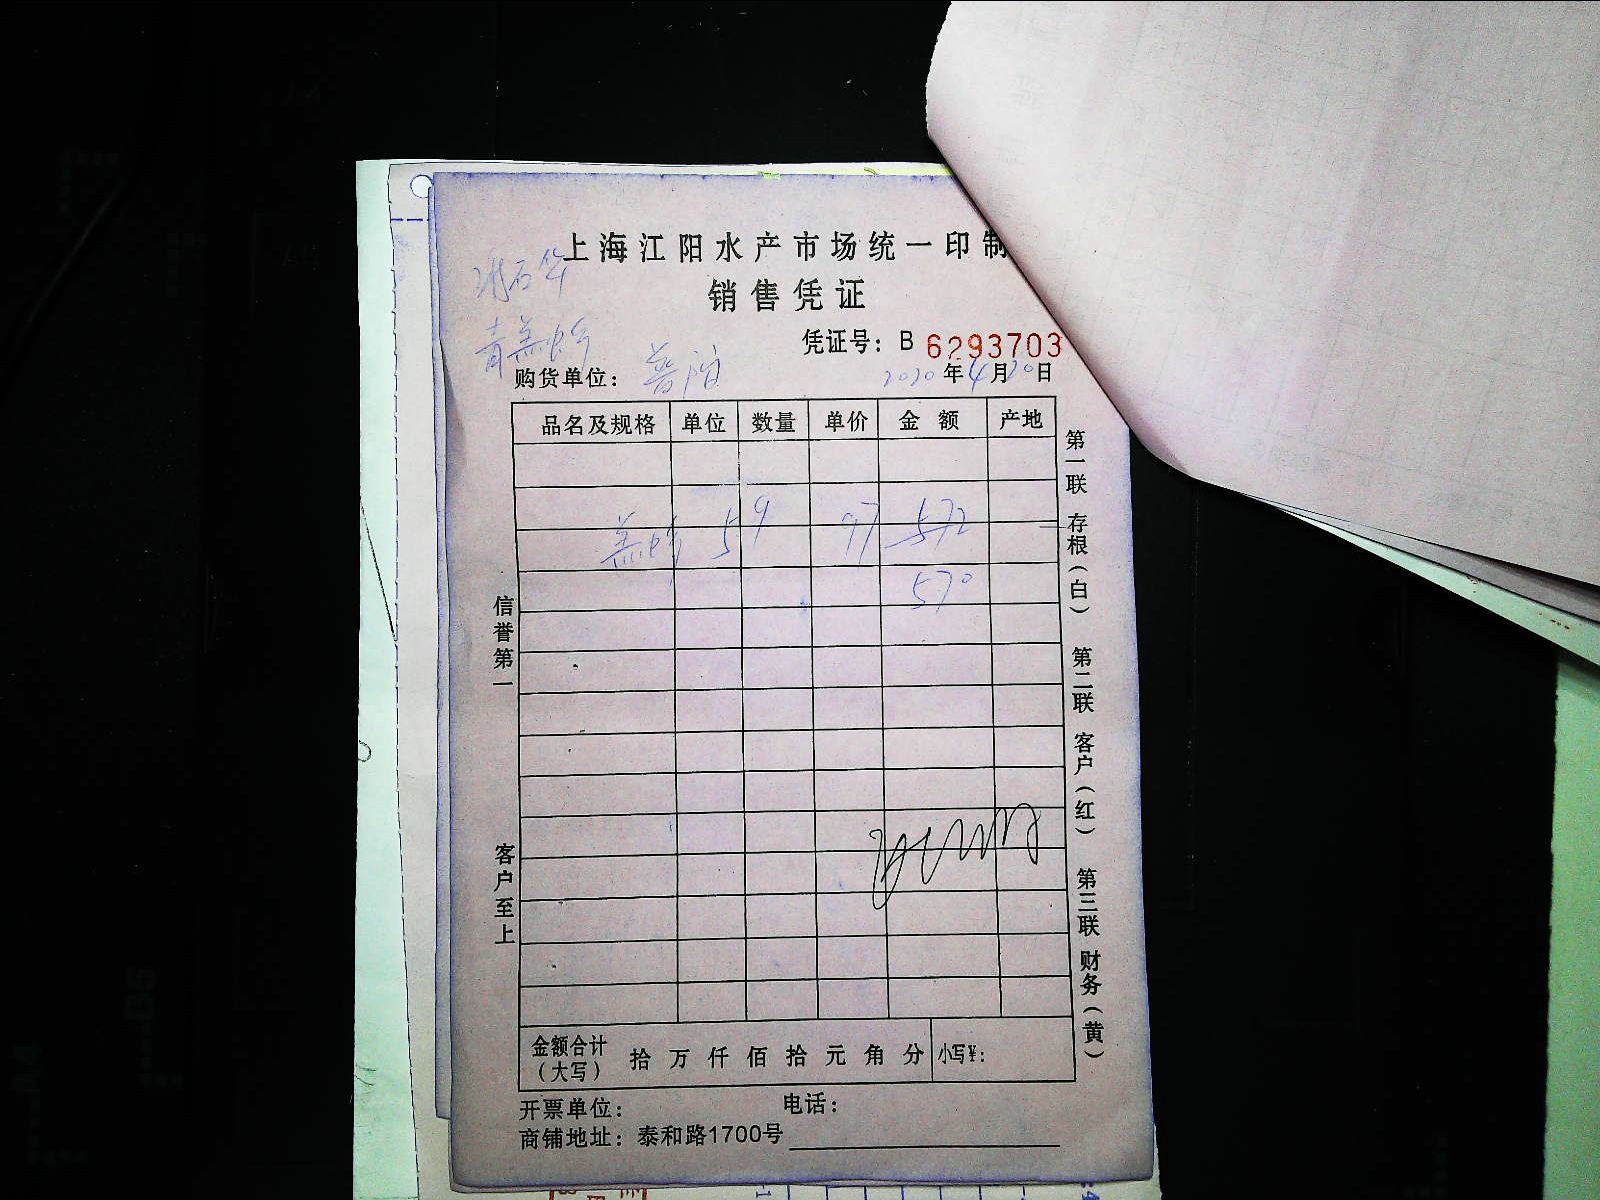 上海江阳水产市场统一印制
销售凭证
青盖蛤
凭证号：B 6293703
购货单位：普陀
2020年4月20日
品名及规格 单位 数量 单价 金额 产地
盖蛤 59 97 572
570
信誉第一
客户至上
第一联 存根（白） 第二联 客户（红） 第三联 财务（黄）
金额合计（大写） 拾万仟佰拾元角分 小写¥：
开票单位： 电话：
商铺地址：泰和路1700号